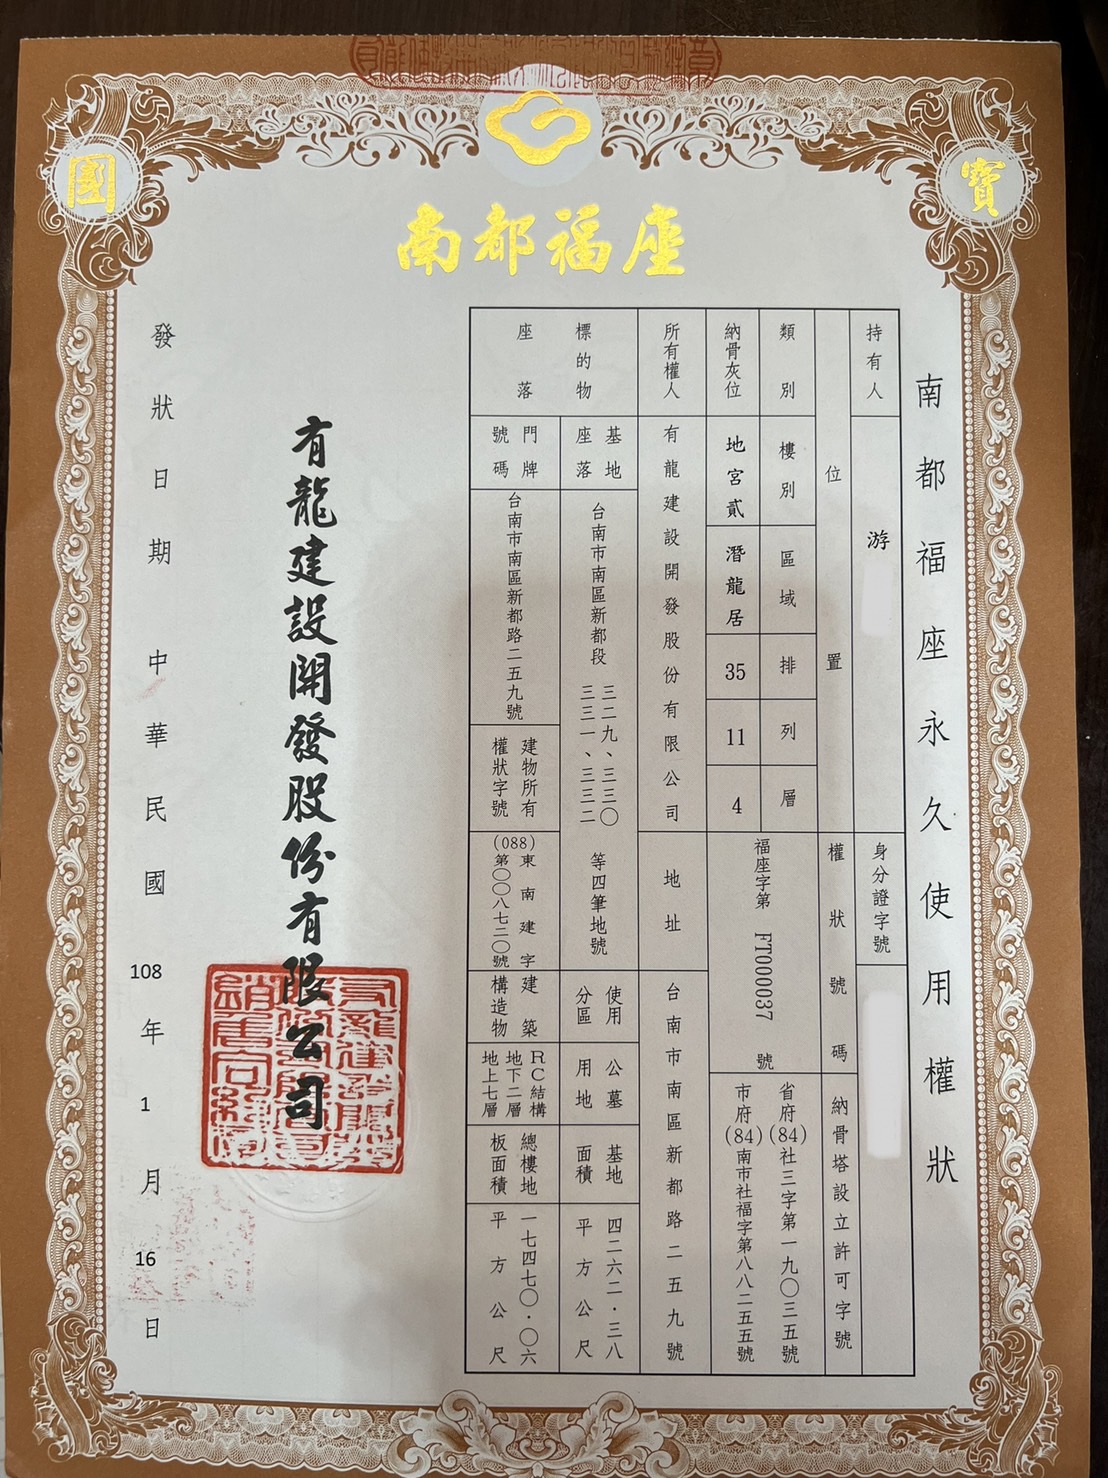 國
寶
南都福座
南都福座永久使用權狀
持有人
游
身分證字號
位置
權狀號碼
納骨塔設立許可字號
類別
樓別
區域
排
列
層
納骨灰位
地宮貳
潛龍居
35
11
4
福座字第 FT000037 號
省府(84)社三字第一九〇三五號
市府(84)南市社福字第八八二五五號
所有權人
有龍建設開發股份有限公司
地址
台南市南區新都路二五九號
標的物
座落
基地
座落
台南市南區新都段
三二九、三三〇
三三一、三三二
等四筆地號
使用
分區
公墓
用地
基地
面積
四二六二.三八
平方公尺
門牌
號碼
台南市南區新都路二五九號
建物所有
權狀字號
(088)東南建字
第〇〇八七二〇號
建築
構造物
RC結構
地下二層
地上七層
總樓地
板面積
一七四七〇.〇六
平方公尺
有龍建設開發股份有限公司
發狀日期 中華民國 108 年 1 月 16 日